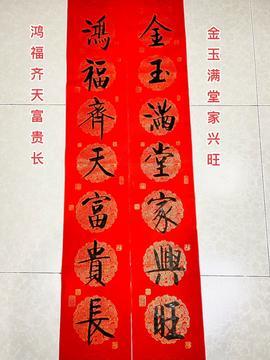 金玉满堂家兴旺
鸿福齐天富贵长
金玉滿堂家興旺
鴻福齊天富貴長